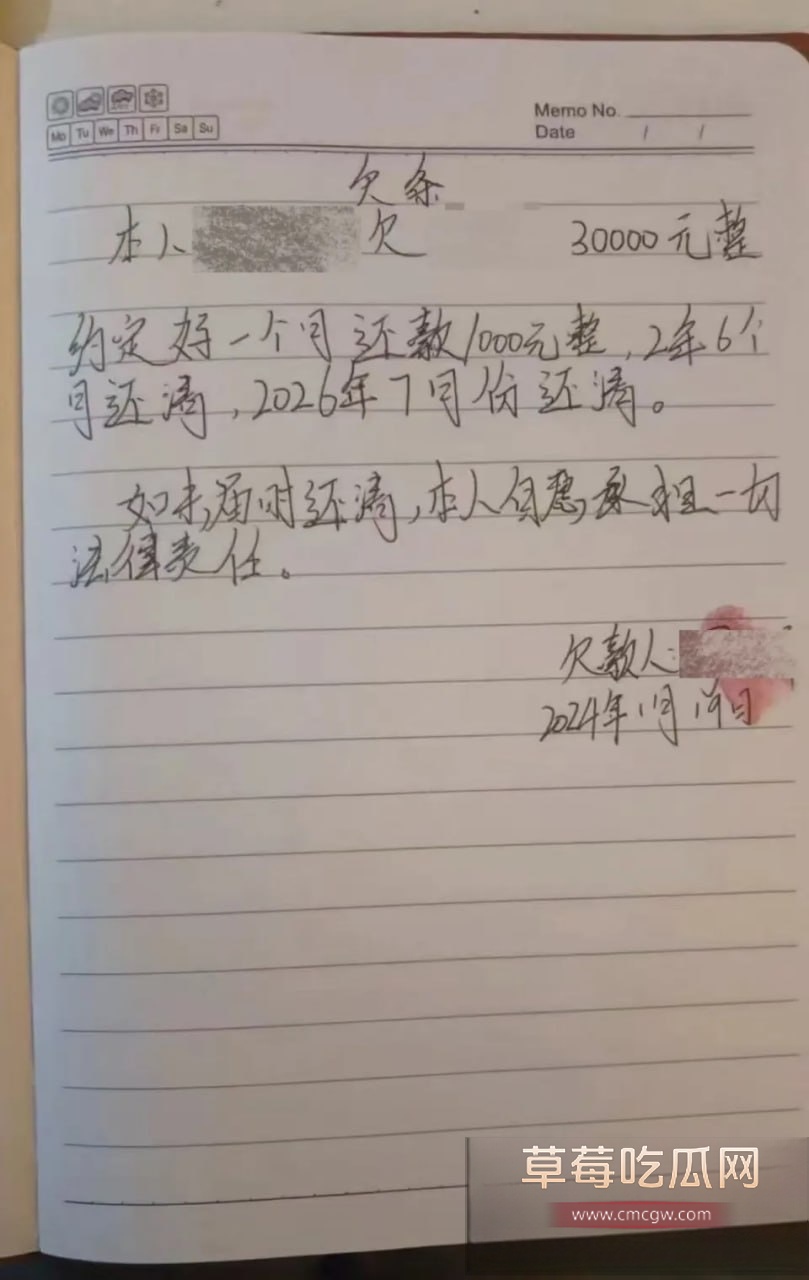 Memo No.
Mo Tu We Th Fr Sa Su
Date / /
欠条
本人 欠 30000元整
约定好一个月还款1000元整,2年6个
月还清,2026年7月份还清。
如未届时还清,本人自愿承担一切
法律责任。
欠款人:
2024年1月19日
草莓吃瓜网
www.cmcgw.com